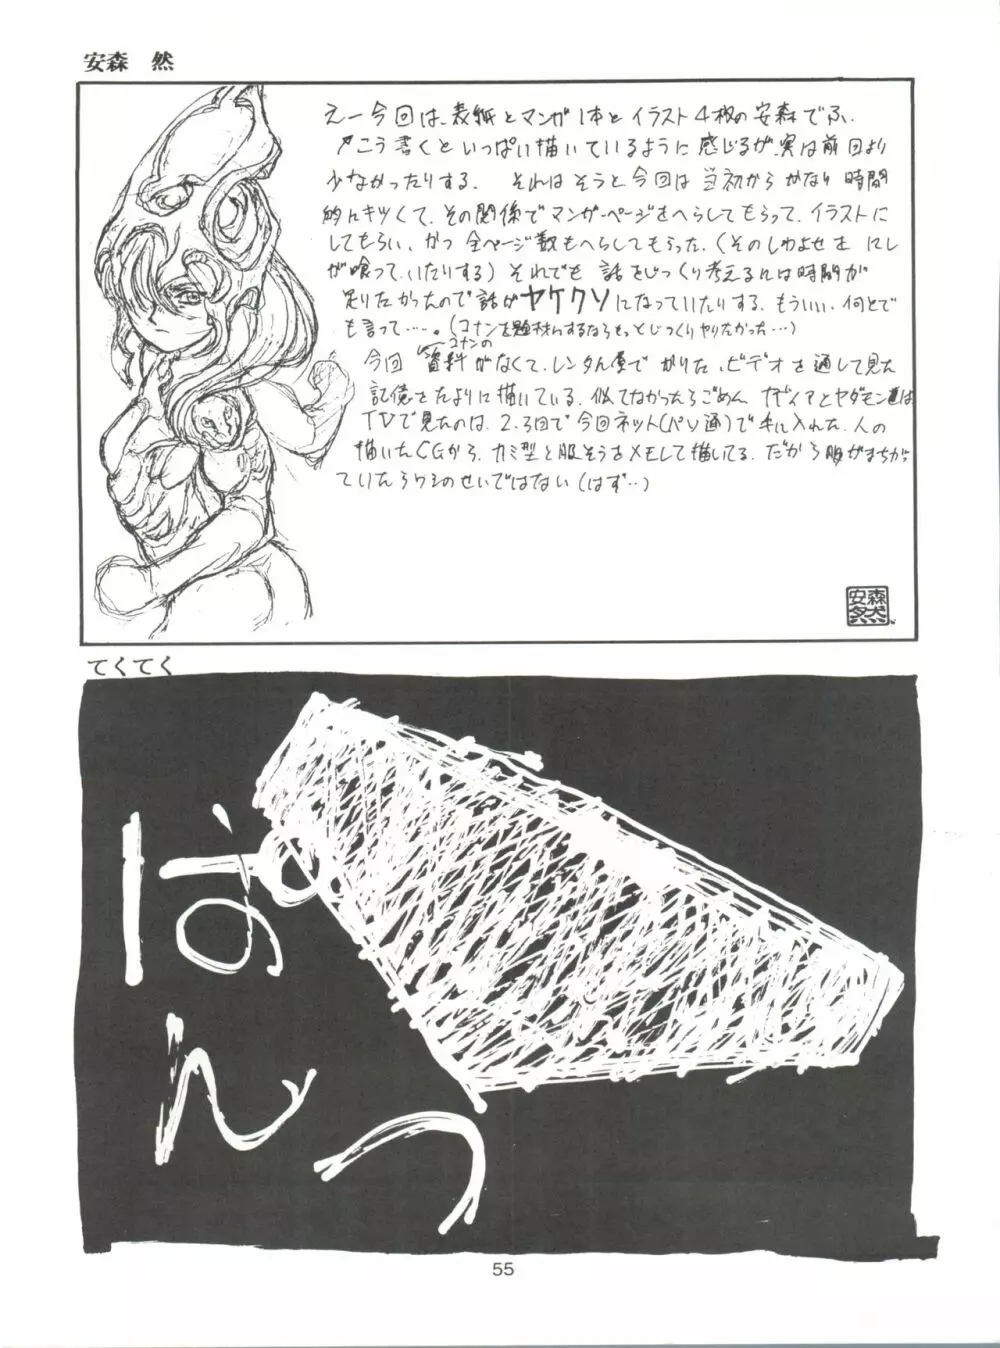 安森　然
えー今回は、表紙とマンガ1本とイラスト4枚の安森でふ。
↗こう書くといっぱい描いているように感じるが、実は前回より
少なかったりする。 それはそうと今回は当初からかなり時間
的にキツくて、その関係でマンガページをへらしてもらって、イラストに
してもらい、かつ全ページ数もへらしてもらった。(そのしわよせを にし
が喰っていたりする) それでも 話をじっくり考えるには時間が
足りなかったので話がヤケクソになっていたりする。もういい、何とで
も言って……。(コナンを題材にするならもっとじっくりやりたかった…)
今回 コナンの資料がなくて、レンタル屋でかりた、ビデオを通して見た
記憶をたよりに描いている。似てなかったらごめん。ガディアとヤダモン達は
TVで見たのは、2、3回で今回ネット(パソ通)で手に入れた、人の
描いたCGから、カミ型と服そうをメモして描いてる。だから服がまちがっ
ていたらワシのせいではない(はず…)
安森
然
てくてく
ぱんつ
55